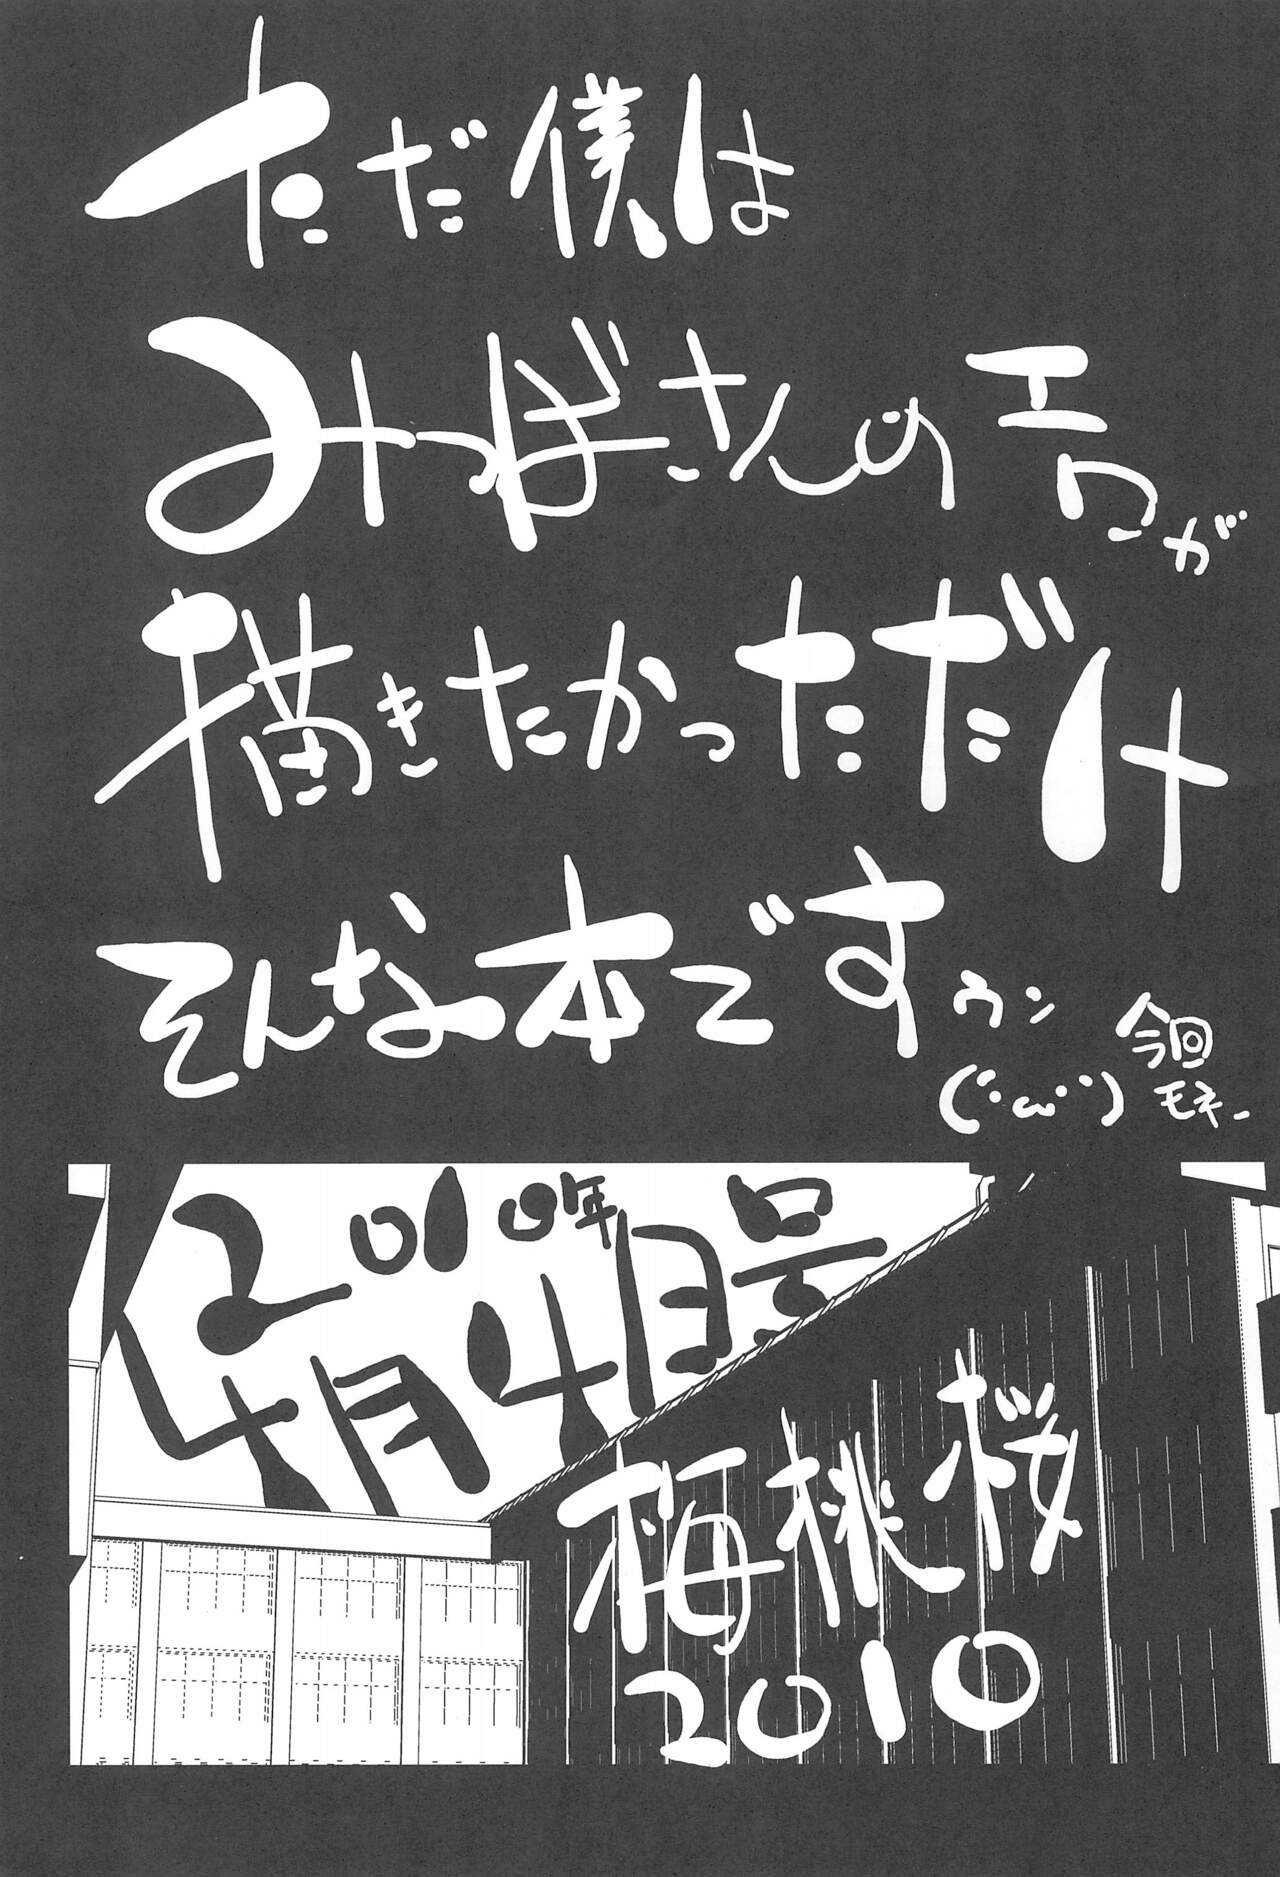 ただ僕は
みつばさんのエロが
描きたかっただけ
そんな本です ウン
(´・ω・`)
今回
モネー
2010年4月号
梅桃桜
2010